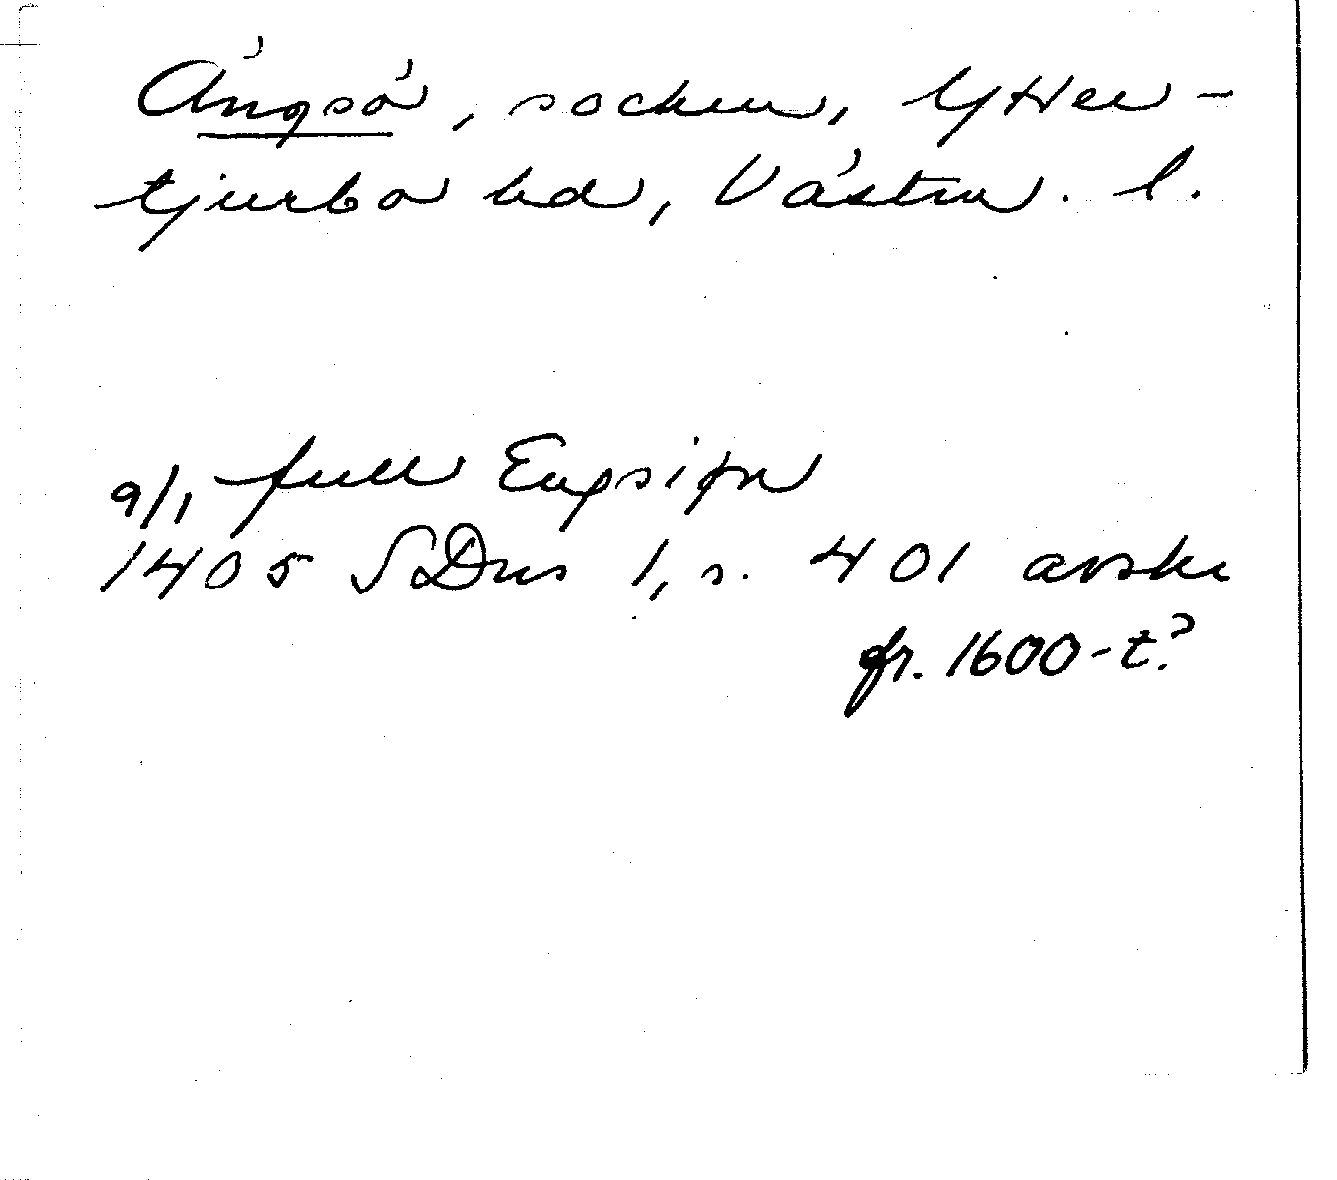 Ängsö, socken, Ytter-
tjurbo hd, Västm. l.
9/1 full Engsiøn
1405 SDns 1, s. 401 avskr
fr. 1600-t?